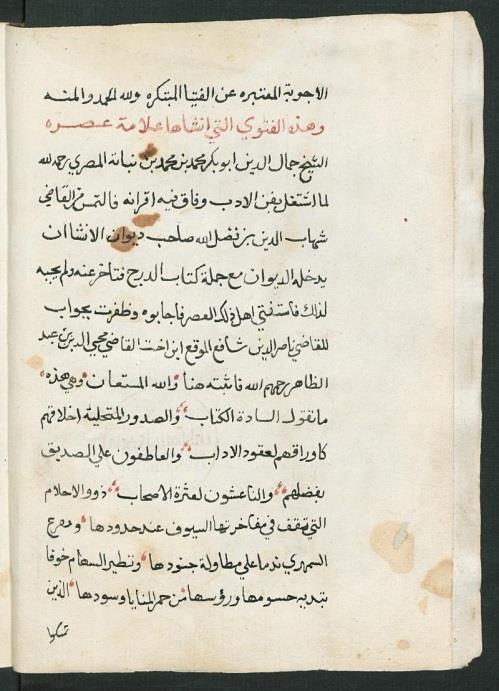 الاجوبة المعتبره عن الفتيا المبتكره ولله الحمد والمنه
وهذه الفتوي التي انشاها علامة عصره
الشيخ جمال الدين ابو بكر محمد بن محمد بن نباتة المصري رحمه الله
لما اشتغل بفن الادب وفاق فيه اقرانه فالتمس من القاضي
شهاب الدين بن فضل الله صاحب ديوان الانشا ان
يدخله الديوان مع جملة كتاب الدرج فتاخر عنه ولم يجبه
لذلك فاستفتي اهل ذلك العصر فاجابوه وظفرت بجواب
للقاضي ناصر الدين شافع الموقع ابن اخت القاضي محيي الدين بن عبد
الظاهر رحمهم الله فاثبته هنا والله المستعان وهي هذه
ما تقول السادة الكتاب والصدور المتحلية اخلاقهم
كاوراقهم لعقود الاداب والعاطفون علي الصديق
بفضلهم والناعشون لعثرة الاصحاب ذوو الاحلام
التي تقف في مفاخرتها السيوف عند حدودها ويقرع
السمهري ندما علي مطاولة جنودها وتطير السهام خوفا
جسومها ورؤسها من حمر المنايا وسودها الذين
تمسكوا